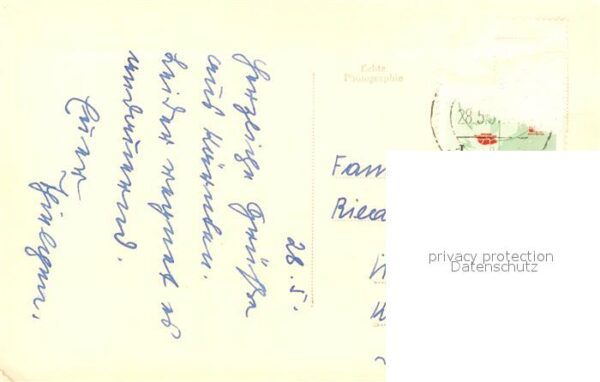 28.5.
Herzliche Grüße
aus Kärnten.
Leider regnet es
andauernd.
Euer
Echte
Photographie
28.5.
Fam
Ried
privacy protection
Datenschutz